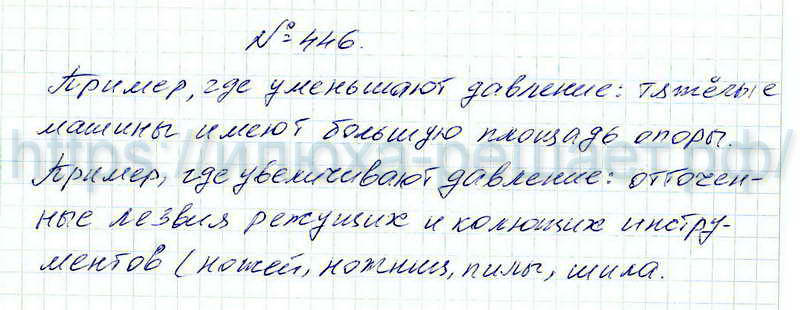 № 446.
Пример, где уменьшают давление: тяжёлые
машины имеют большую площадь опоры.
https://илюха-решает.рф/
Пример, где увеличивают давление: отточен-
ные лезвия режущих и колющих инстру-
ментов (ножей, ножниц, пилы, шила.